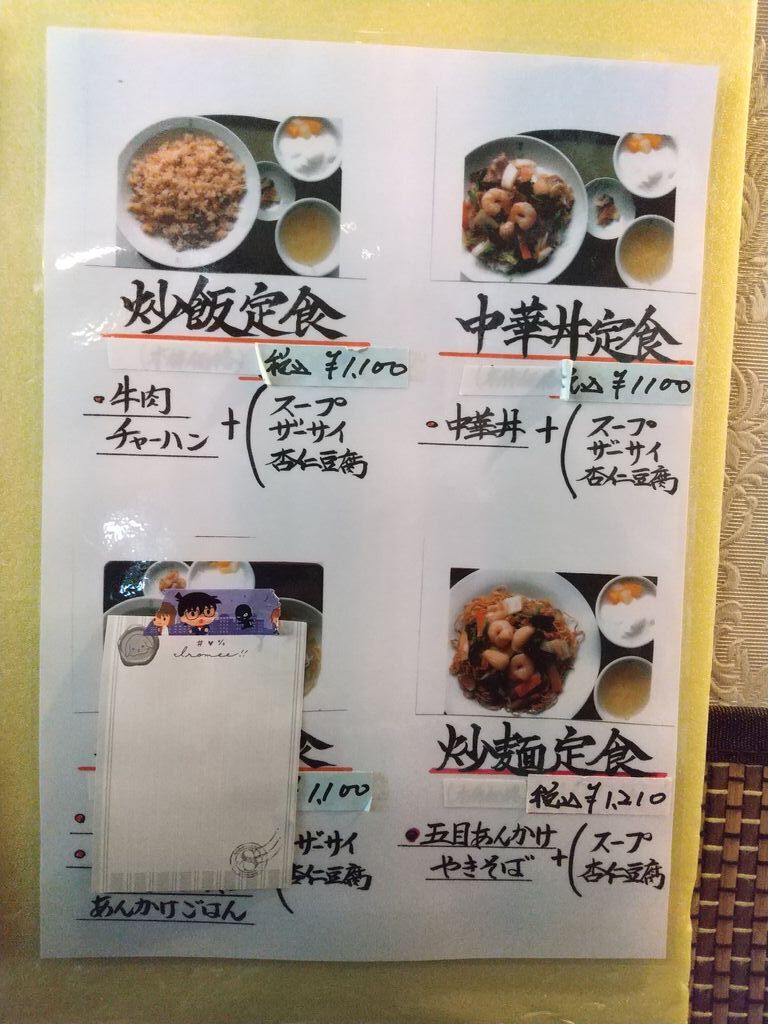 炒飯定食
税込 ¥1,100
・牛肉
チャーハン
+
スープ
ザーサイ
杏仁豆腐
中華丼定食
込 ¥1100
・中華丼 +
スープ
ザーサイ
杏仁豆腐
食
1,100
ザーサイ
杏仁豆腐
あんかけごはん
炒麺定食
税込 ¥1,210
・五目あんかけ
やきそば
+
スープ
杏仁豆腐